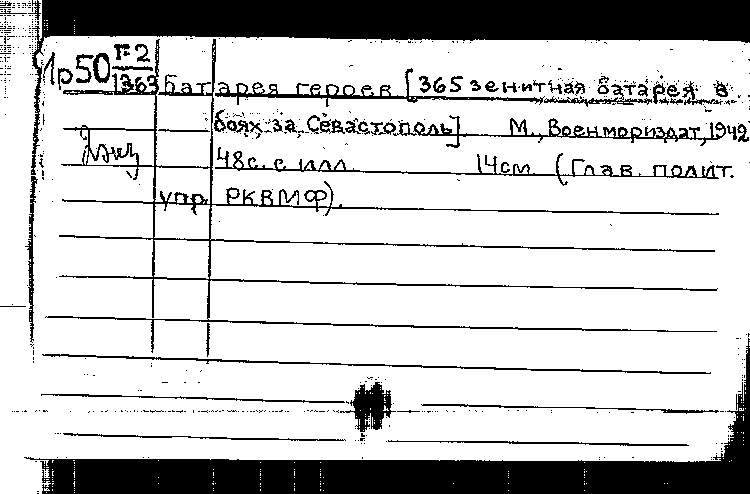 1р50 Г-2
1363
Батарея героев [365 зенитная батарея в
боях за Севастополь]. М., Военмориздат, 1942
48с. с илл. 14см. (Глав. полит.
упр. РКВМФ).